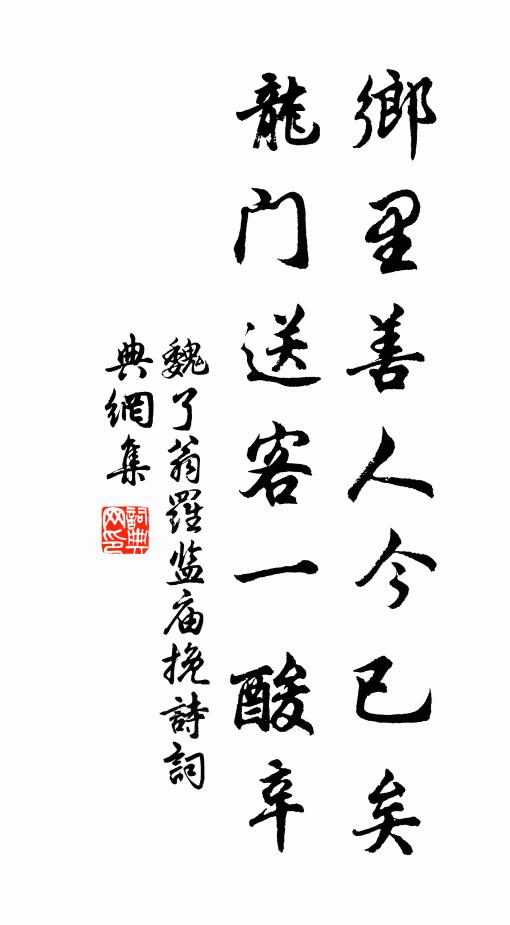 鄉里善人今已矣
龍门送客一酸辛
魏了翁羅监庙挽詩詞
典網集
詞典网印